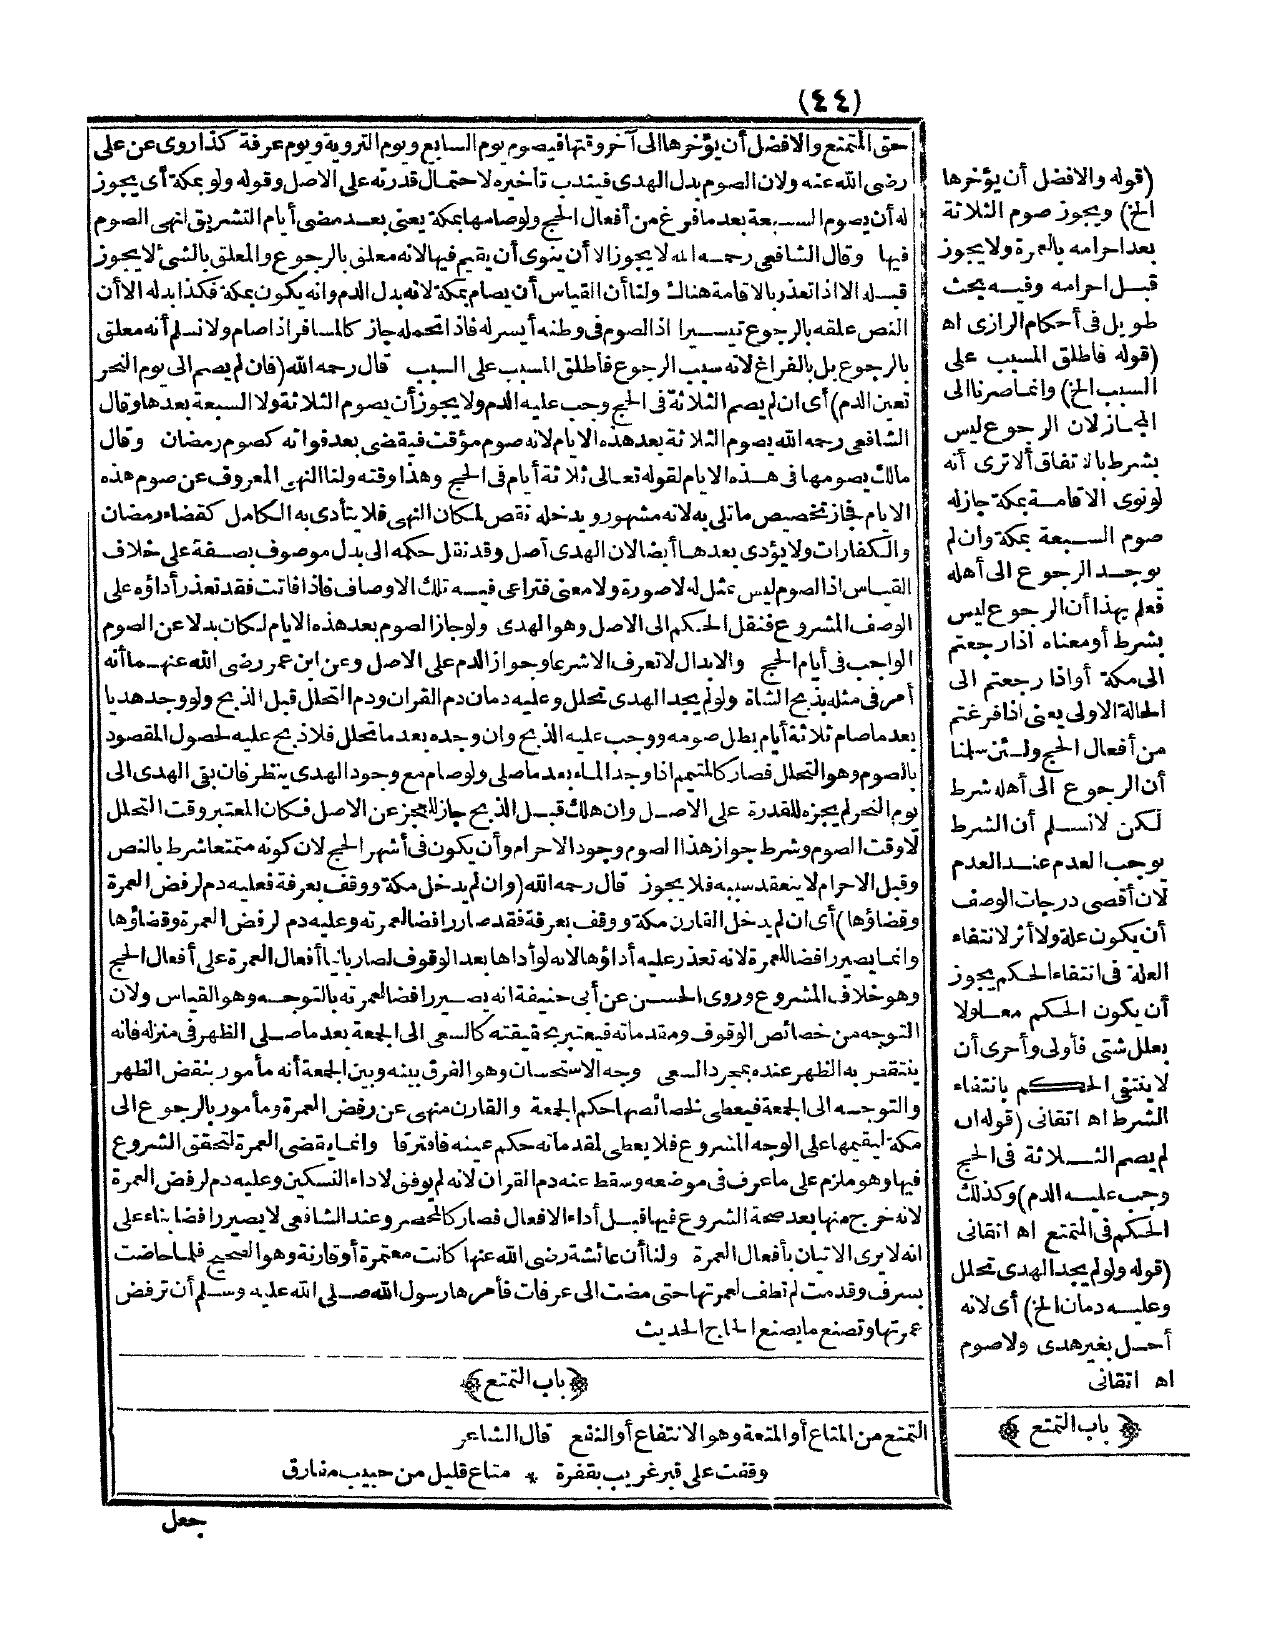 (٤٤)
حق المتمتع والافضل أن يؤخرها الى آخر وقتها فيصوم يوم السابع ويوم التروية ويوم عرفة كذا روى عن على
رضى الله عنه ولان الصوم بدل الهدى فيندب تأخيره لاحتمال قدرته على الاصل وقوله ولو بمكة أى يجوز
له أن يصوم السبعة بعد ما فرغ من أفعال الحج ولو صامها بمكة يعنى بعد مضى أيام التشريق لنهى الصوم
فيها وقال الشافعى رحمه الله لا يجوز الا أن ينوى أن يقيم فيها لانه معلق بالرجوع والمعلق بالشئ لا يجوز
قبله الا اذا تعذر بالاقامة هناك ولنا أن القياس أن يصام بمكة لانه بدل الدم وانه يكون بمكة فكذا بدله الا أن
النص علقه بالرجوع تيسيرا اذ الصوم فى وطنه أيسر له فاذا تحمله جاز كالمسافر اذا صام ولا نسلم أنه معلق
بالرجوع بل بالفراغ لانه سبب الرجوع فأطلق المسبب على السبب قال رحمه الله (فان لم يصم الى يوم النحر
تعين الدم) أى ان لم يصم الثلاثة فى الحج وجب عليه الدم ولا يجوز أن يصوم الثلاثة ولا السبعة بعدها وقال
الشافعى رحمه الله يصوم الثلاثة بعد هذه الايام لانه صوم مؤقت فيقضى بعد فواته كصوم رمضان وقال
مالك يصومها فى هذه الايام لقوله تعالى ثلاثة أيام فى الحج وهذا وقته ولنا النهى المعروف عن صوم هذه
الايام فجاز تخصيص ما تلى به لانه مشهور ويدخله نقص لمكان النهى فلا يتأدى به الكامل كقضاء رمضان
والكفارات ولا يؤدى بعدها أيضا لان الهدى أصل وقد نقل حكمه الى بدل موصوف بصفة على خلاف
القياس اذ الصوم ليس بمثل له لا صورة ولا معنى فتراعى فيه تلك الاوصاف فاذا فاتت فقد تعذر أداؤه على
الوصف المشروع فنقل الحكم الى الاصل وهو الهدى ولو جاز الصوم بعد هذه الايام لكان بدلا عن الصوم
الواجب فى أيام الحج والابدال لا تعرف الا شرعا وجواز الدم على الاصل وعن ابن عمر رضى الله عنهما أنه
أمر فى مثله بذبح الشاة ولو لم يجد الهدى تحلل وعليه دمان دم القران ودم التحلل قبل الذبح ولو وجد هديا
بعد ما صام ثلاثة أيام بطل صومه ووجب عليه الذبح وان وجده بعد ما تحلل فلا ذبح عليه لحصول المقصود
بالصوم وهو التحلل فصار كالمتيمم اذا وجد الماء بعد ما صلى ولو صام مع وجود الهدى ينظر فان بقى الهدى الى
يوم النحر لم يجزه للقدرة على الاصل وان هلك قبل الذبح جاز للعجز عن الاصل فكان المعتبر وقت التحلل
لا وقت الصوم وشرط جواز هذا الصوم وجود الاحرام وأن يكون فى أشهر الحج لان كونه متمتعا شرط بالنص
وقبل الاحرام لا ينعقد سببه فلا يجوز قال رحمه الله (وان لم يدخل مكة ووقف بعرفة فعليه دم لرفض العمرة
وقضاؤها) أى ان لم يدخل القارن مكة ووقف بعرفة فقد صار رافضا لعمرته وعليه دم لرفض العمرة وقضاؤها
وانما يصير رافضا للعمرة لانه تعذر عليه أداؤها لانه لو أداها بعد الوقوف لصار بانيا أفعال العمرة على أفعال الحج
وهو خلاف المشروع وروى الحسن عن أبى حنيفة انه يصير رافضا لعمرته بالتوجه وهو القياس ولان
التوجه من خصائص الوقوف ومقدماته فيعتبر بحقيقته كالسعى الى الجمعة بعد ما صلى الظهر فى منزله فانه
ينتقض به الظهر عنده بمجرد السعى وجه الاستحسان وهو الفرق بينه وبين الجمعة أنه مأمور بنقض الظهر
والتوجه الى الجمعة فيعطى لخصائصها حكم الجمعة والقارن منهى عن رفض العمرة ومأمور بالرجوع الى
مكة ليقيمها على الوجه المشروع فلا يعطى لمقدماته حكم عينه فافترقا وانما يقضى العمرة لتحقق الشروع
فيها وهو ملزم على ما عرف فى موضعه وسقط عنه دم القران لانه لم يوفق لاداء النسكين وعليه دم لرفض العمرة
لانه خرج منها بعد صحة الشروع فيها قبل أداء الافعال فصار كالمحصر وعند الشافعى لا يصير رافضا بناء على
انه لا يرى الاتيان بأفعال العمرة ولنا أن عائشة رضى الله عنها كانت معتمرة أو قارنة وهو الصحيح فلما حاضت
بسرف وقدمت لم تطف لعمرتها حتى مضت الى عرفات فأمرها رسول الله صلى الله عليه وسلم أن ترفض
عمرتها وتصنع ما يصنع الحاج الحديث
﴿باب التمتع﴾
التمتع من المتاع أو المتعة وهو الانتفاع أو النفع قال الشاعر
وقفت على قبر غريب بقفرة * متاع قليل من حبيب مفارق
جعل
(قوله والافضل أن يؤخرها
الخ) ويجوز صوم الثلاثة
بعد احرامه بالعمرة ولا يجوز
قبل احرامه وفيه بحث
طويل فى أحكام الرازى اه
(قوله فأطلق المسبب على
السبب الخ) وانما صرنا الى
المجاز لان الرجوع ليس
بشرط بالاتفاق ألا ترى أنه
لو نوى الاقامة بمكة جاز له
صوم السبعة بمكة وان لم
يوجد الرجوع الى أهله
فعلم بهذا أن الرجوع ليس
بشرط أو معناه اذا رجعتم
الى مكة أو اذا رجعتم الى
الحالة الاولى يعنى اذا فرغتم
من أفعال الحج ولئن سلمنا
أن الرجوع الى أهله شرط
لكن لا نسلم أن الشرط
يوجب العدم عند العدم
لان أقصى درجات الوصف
أن يكون علة ولا أثر لانتفاء
العلة فى انتفاء الحكم يجوز
أن يكون الحكم معلولا
بعلل شتى فأولى وأحرى أن
لا ينتفى الحكم بانتفاء
الشرط اه اتقانى (قوله ان
لم يصم الثلاثة فى الحج
وجب عليه الدم) وكذلك
الحكم فى المتمتع اه اتقانى
(قوله ولو لم يجد الهدى تحلل
وعليه دمان الخ) أى لانه
أحل بغير هدى ولا صوم
اه اتقانى
﴿باب التمتع﴾